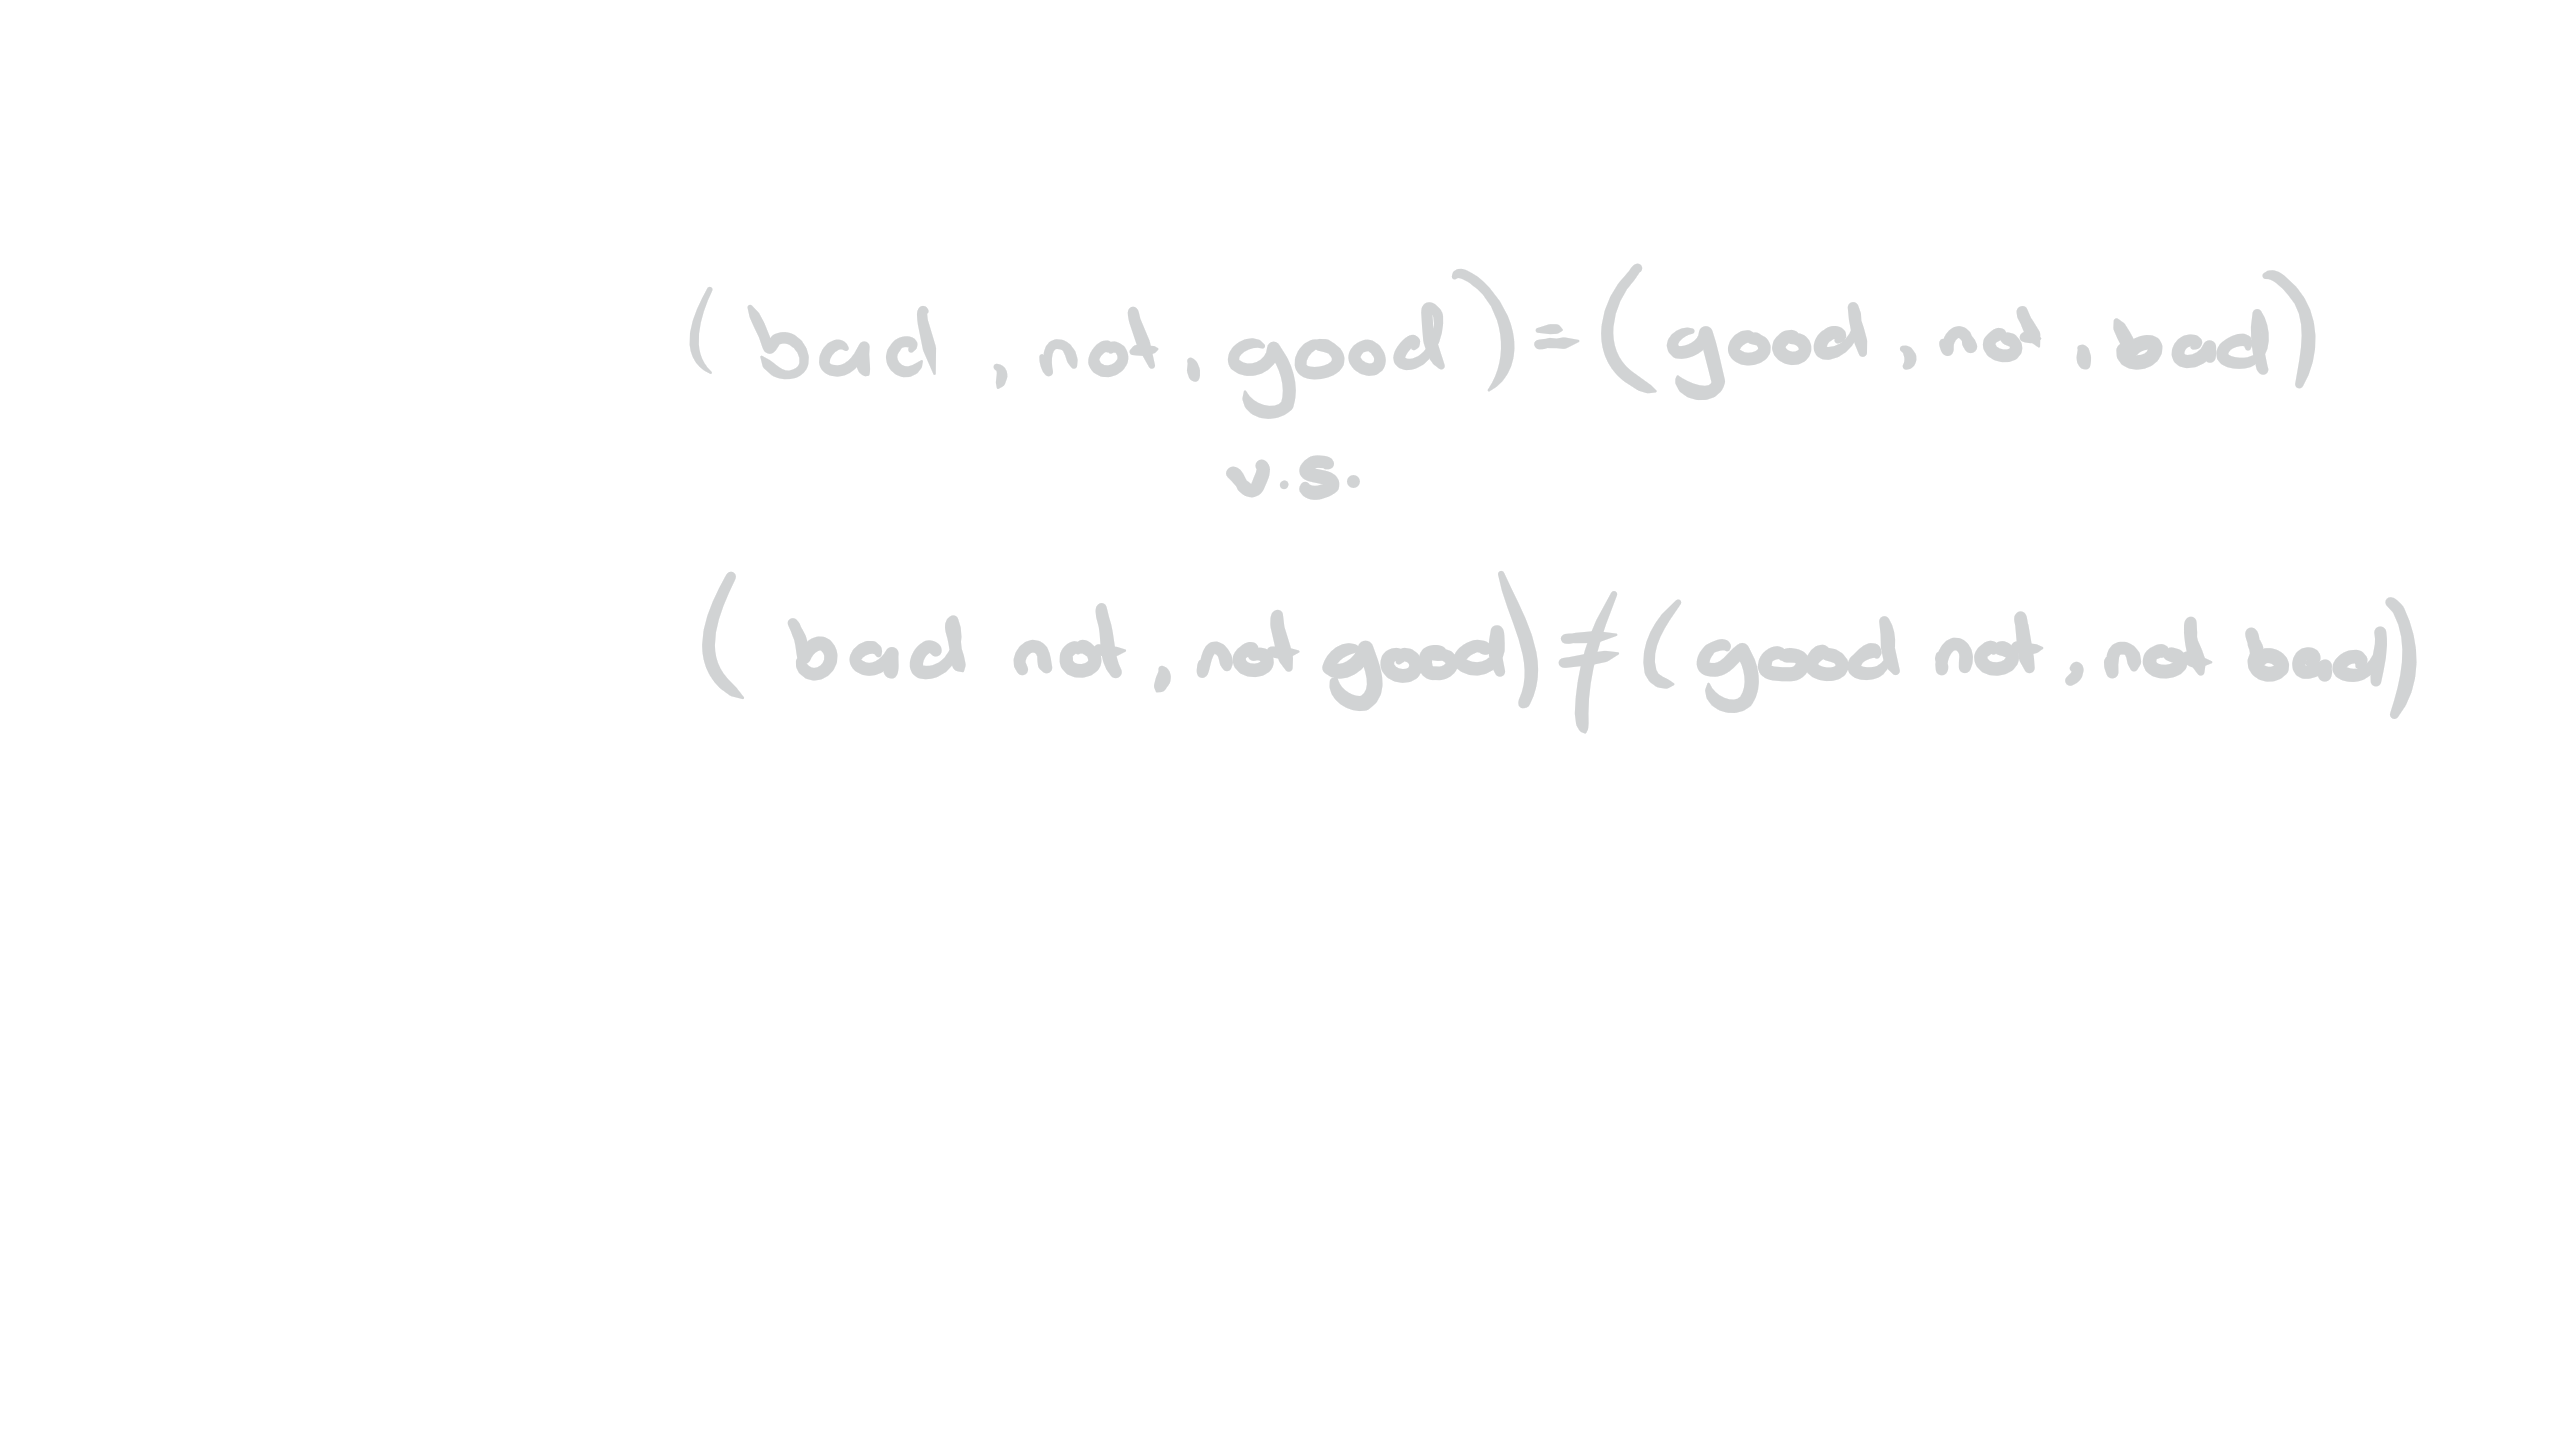 ( bad , not , good ) = ( good , not , bad )
v.s.
( bad not , not good ) ≠ ( good not , not bad )